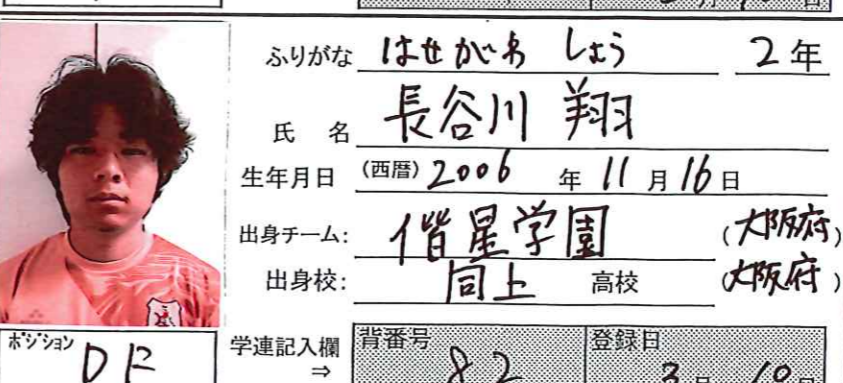 ふりがな はせがわ しょう 2年
氏 名 長谷川 翔
生年月日 (西暦) 2006 年 11 月 16 日
出身チーム: 偕星学園 (大阪府)
出身校: 同上 高校 (大阪府)
ポジション DF
学連記入欄 ⇒ 背番号 82 登録日 3月 10日